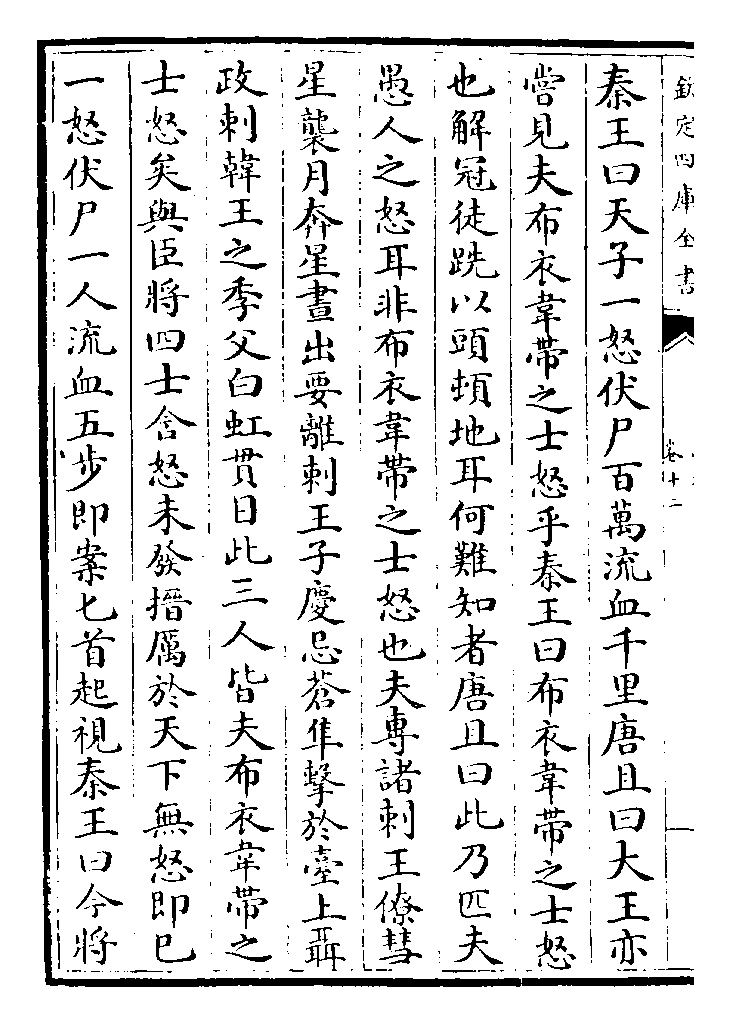 欽定四庫全書
卷十二
秦王曰天子一怒伏尸百萬流血千里唐且曰大王亦
嘗見夫布衣韋帶之士怒乎秦王曰布衣韋帶之士怒
也解冠徒跣以頭頓地耳何難知者唐且曰此乃匹夫
愚人之怒耳非布衣韋帶之士怒也夫專諸刺王僚彗
星襲月奔星晝出要離刺王子慶忌蒼隼擊於臺上聶
政刺韓王之季父白虹貫日此三人皆夫布衣韋帶之
士怒矣與臣將四士含怒未發搢厲於天下無怒即已
一怒伏尸一人流血五步即案匕首起視秦王曰今將